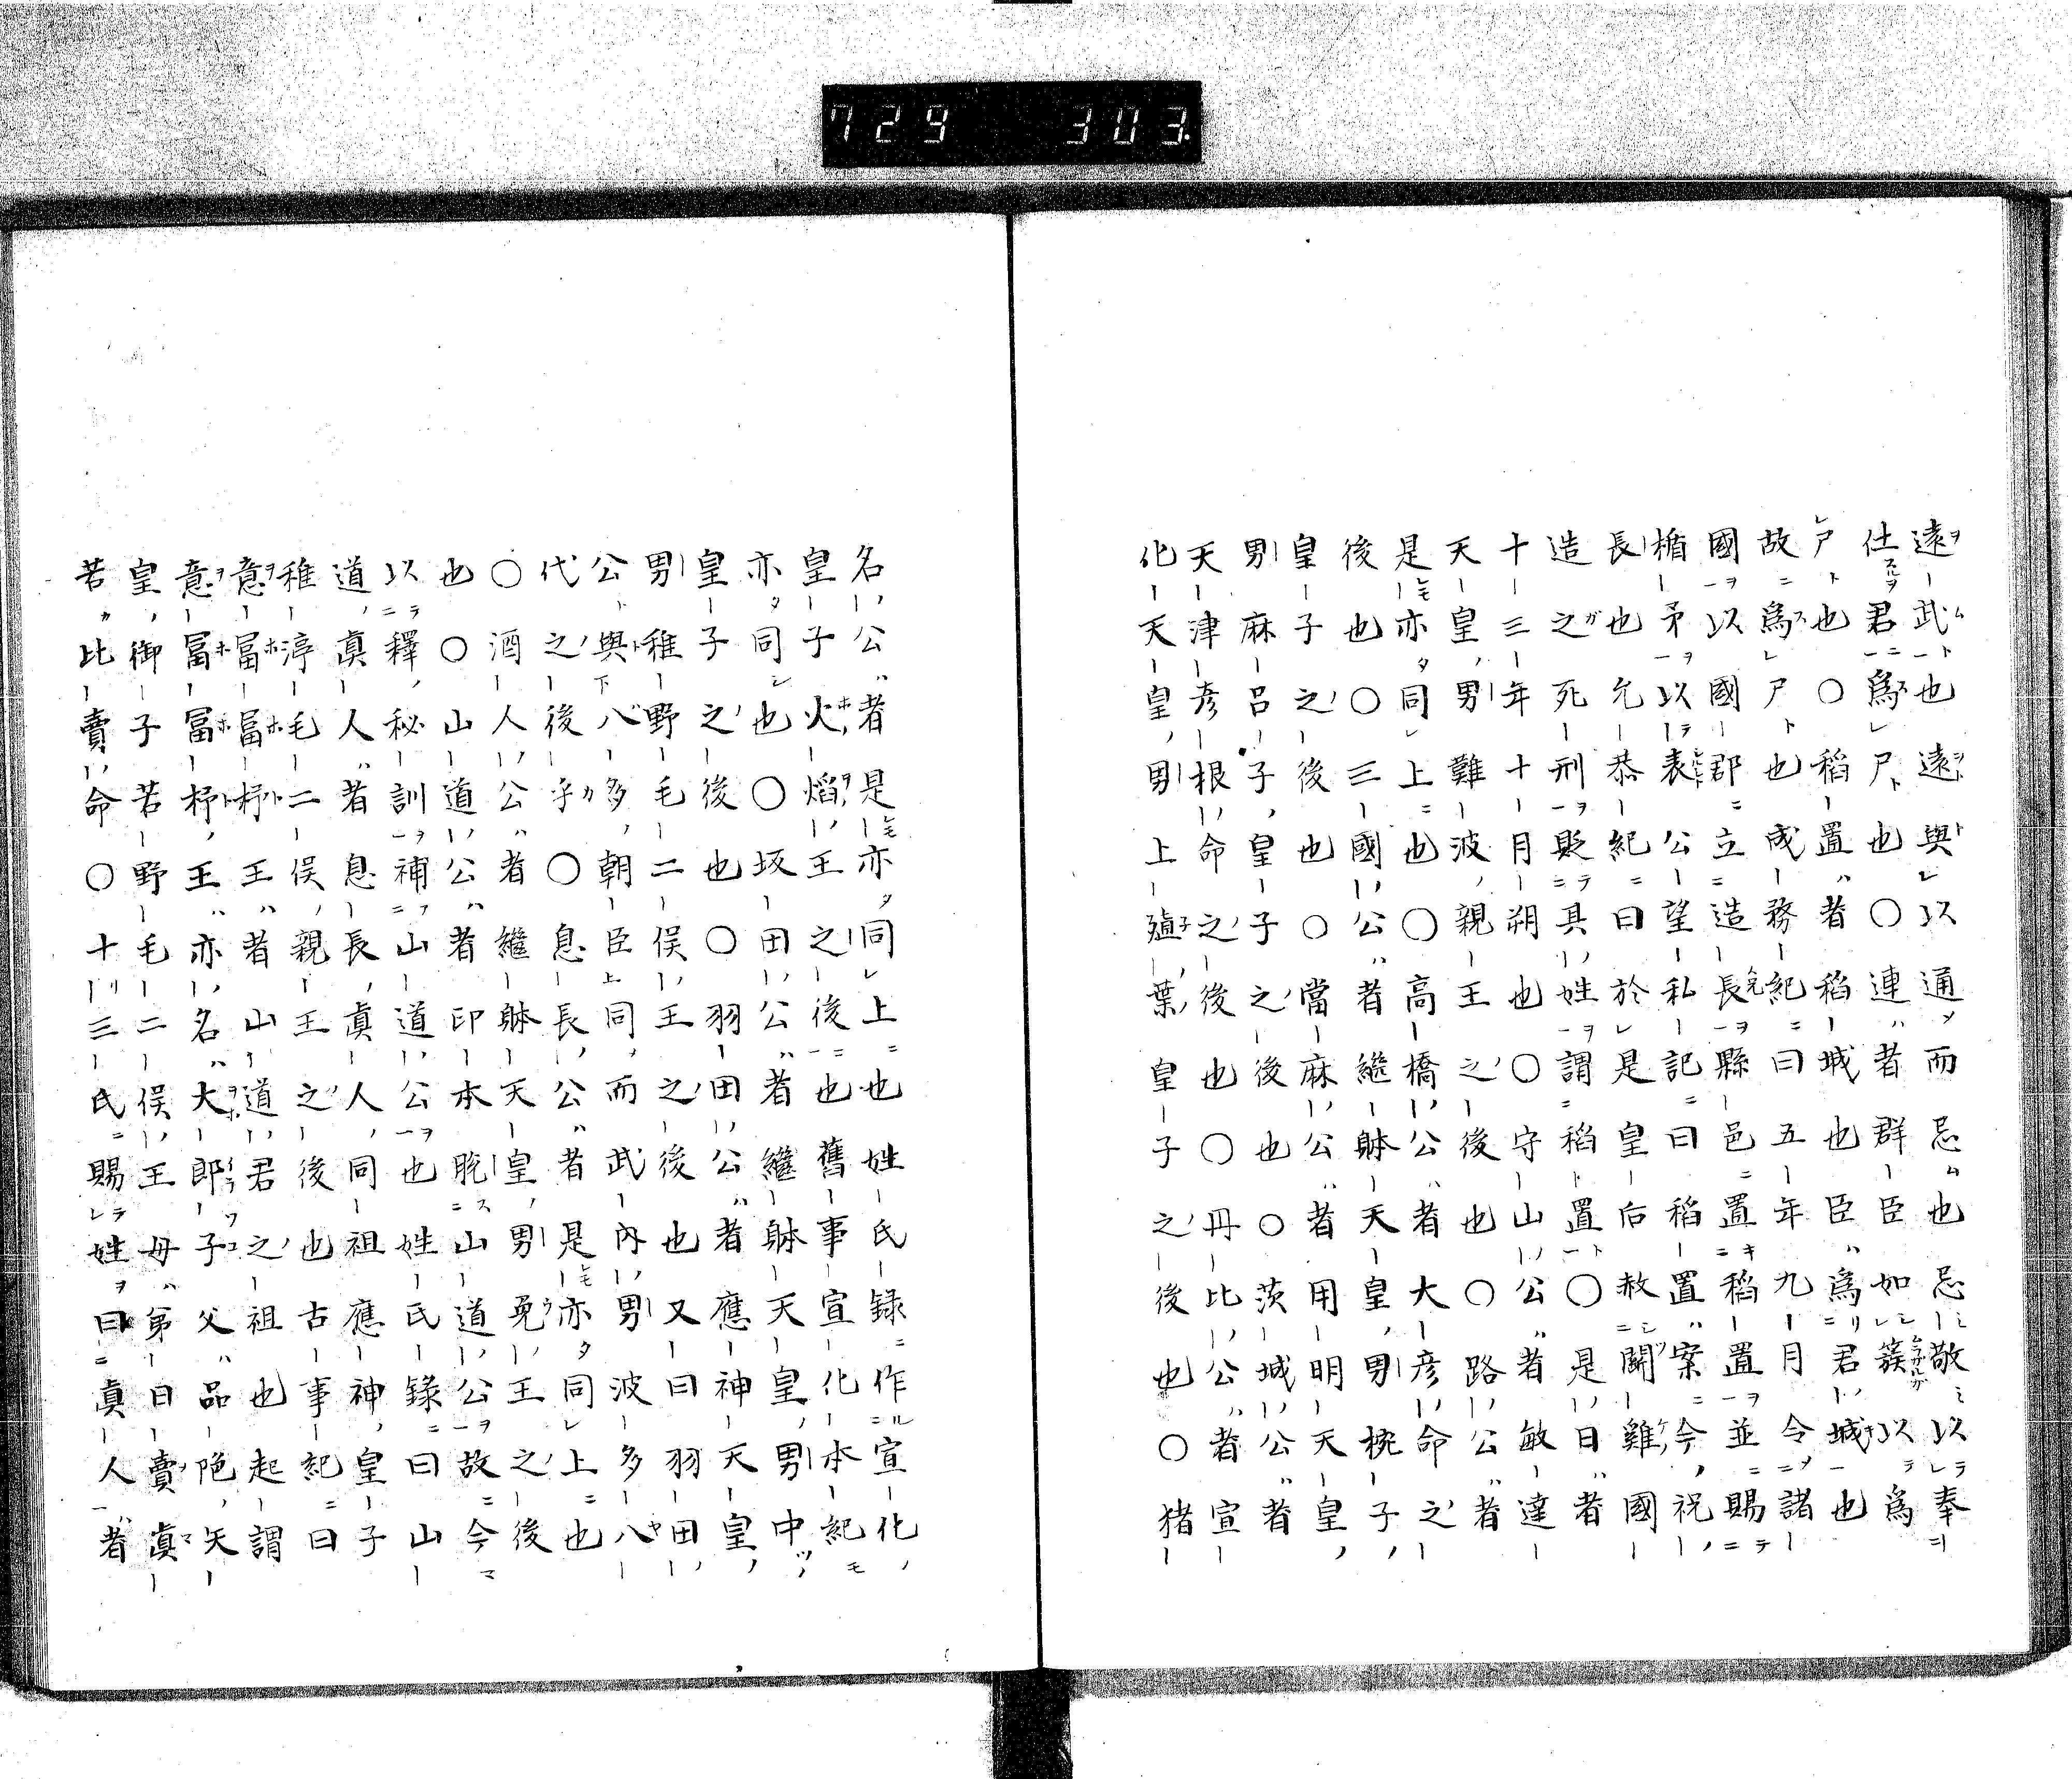 729 303
遠武也遠與以通而忌也忌敬以奉
仕君為尸也〇連者群臣如簇以為
尸也〇稻置者稻城也臣為君城也
故為尸也成務紀曰五年九月令諸
國以國郡立造長縣邑置稻置並賜
楯矛以表公望私記曰稻置案今祝
長也允恭紀曰於是皇后赦鬪雞國
造之死刑貶其姓謂稻置〇是日者
十三年十月朔也〇守山公者敏達
天皇男難波親王之後也〇路公者
是亦同上也〇高橋公者大彦命之
後也〇三國公者繼躰天皇男椀子
皇子之後也〇當麻公者用明天皇
男麻呂子皇子之後也〇茨城公者
天津彦根命之後也〇丹比公者宣
化天皇男上殖葉皇子之後也〇猪
名公者是亦同上也姓氏録作宣化
皇子火焰王之後也舊事宣化本紀
亦同也〇坂田公者繼躰天皇男中
皇子之後也〇羽田公者應神天皇
男稚野毛二俣王之後也又曰羽田
公與八多朝臣同而武内男波多八
代之後乎〇息長公者是亦同上也
〇酒人公者繼躰天皇男兎王之後
也〇山道公者印本脱山道公故今
以釋秘訓補山道公也姓氏録曰山
道真人者息長真人同祖應神皇子
稚渟毛二俣親王之後也古事紀曰
意冨冨杼王者山道君之祖也起謂
意冨冨杼王亦名大郎子父品陁天
皇御子若野毛二俣王母弟日賣真
若比賣命〇十三氏賜姓曰真人者